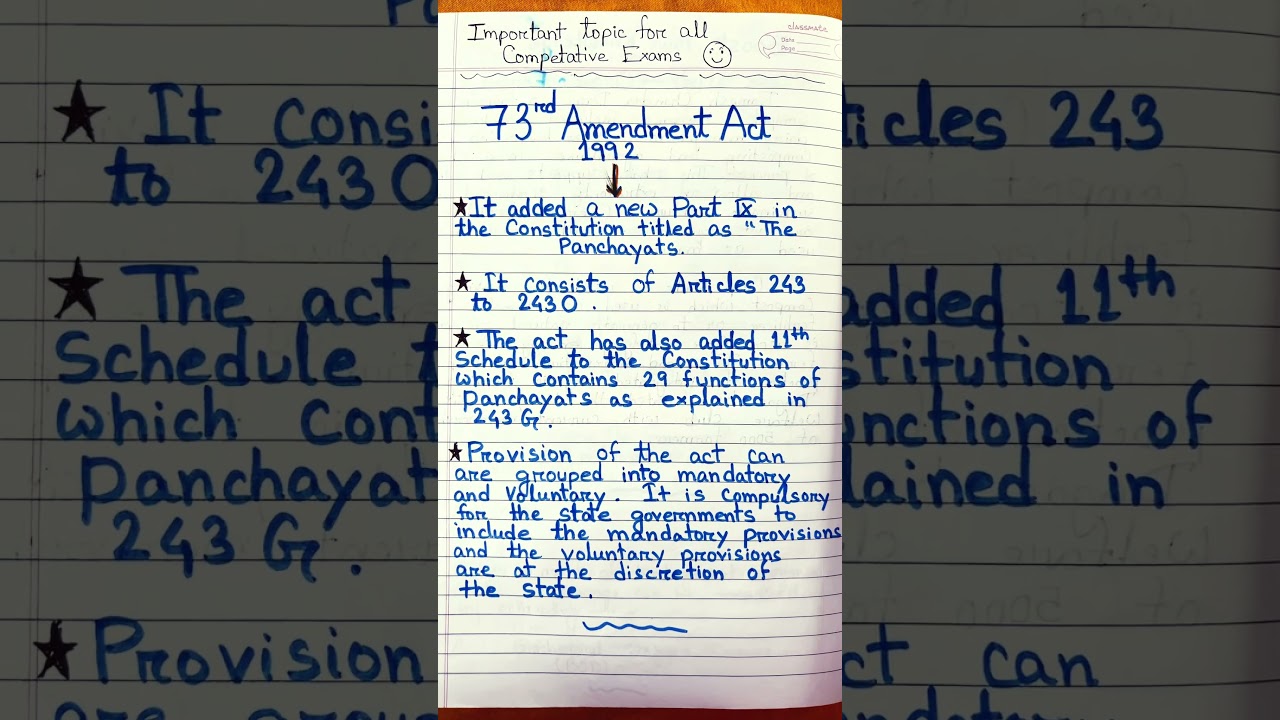 Important topic for all
Competative Exams
classmate
Date
Page
73red Amendment Act
1992
★It added a new Part IX in
the Constitution titled as "The
Panchayats.
★ It consists of Articles 243
to 243O.
★ The act has also added 11th
Schedule to the Constitution
which contains 29 functions of
panchayats as explained in
243 G.
★Provision of the act can
are grouped into mandatory
and voluntary. It is compulsory
for the state governments to
include the mandatory provisions
and the voluntary provisions
are at the discretion of
the state.